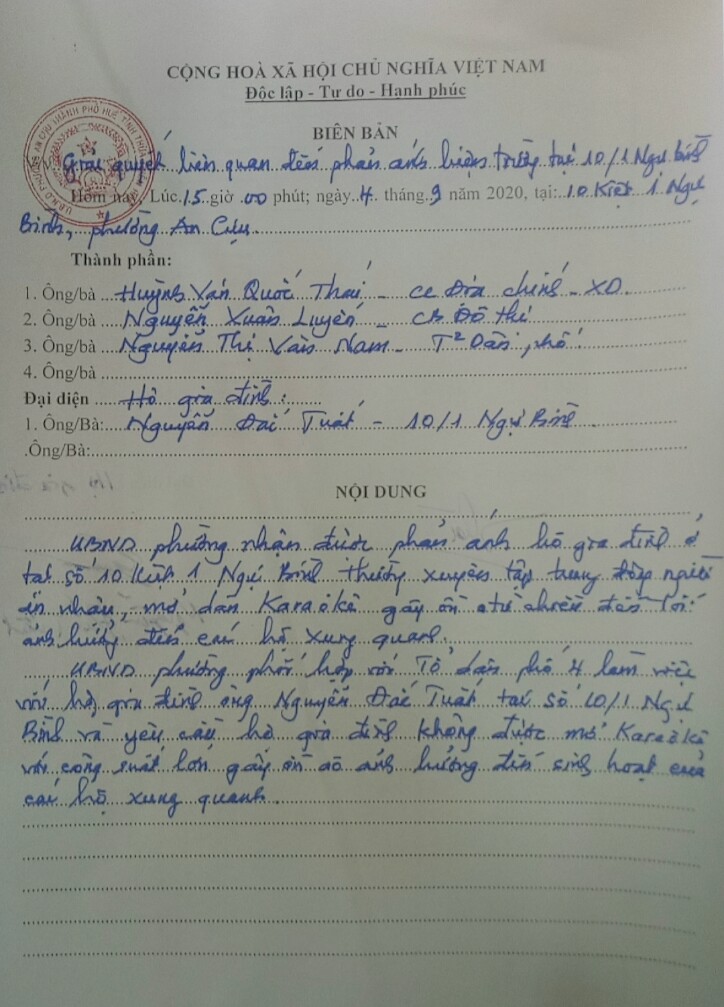 CỘNG HOÀ XÃ HỘI CHỦ NGHĨA VIỆT NAM
Độc lập - Tự do - Hạnh phúc
BIÊN BẢN
Giải quyết liên quan đến phản ánh hiện trường tại 10/1 Ngự Bình
Hôm nay, Lúc 15 giờ 00 phút; ngày 4 tháng 9 năm 2020, tại: 10 Kiệt 1 Ngự
Bình, phường An Cựu
Thành phần:
1. Ông/bà Huỳnh Văn Quốc Thái - CC Địa chính - XD
2. Ông/bà Nguyễn Xuân Luyến - CB Đô thị
3. Ông/bà Nguyễn Thị Vân Nam - T² Dân phố
4. Ông/bà
Đại diện Hộ gia đình:
1. Ông/Bà: Nguyễn Đắc Tuất - 10/1 Ngự Bình
.Ông/Bà:
NỘI DUNG
UBND phường nhận được phản ánh hộ gia đình ở
tại số 10 Kiệt 1 Ngự Bình thường xuyên tập trung đông người
ăn nhậu, mở dàn Karaôkê gây ồn từ chiều đến tối
ảnh hưởng đến các hộ xung quanh.
UBND phường phối hợp với Tổ dân phố 4 làm việc
với hộ gia đình ông Nguyễn Đắc Tuất tại số 10/1 Ngự
Bình và yêu cầu hộ gia đình không được mở Karaôkê
với công suất lớn gây ồn ào ảnh hưởng đến sinh hoạt của
các hộ xung quanh